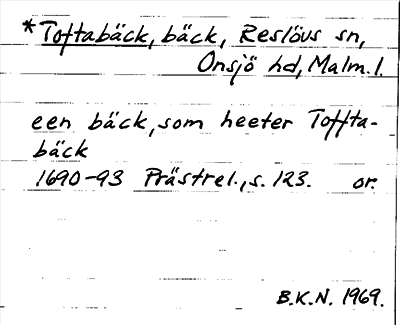 *Toftabäck, bäck, Reslövs sn,
Onsjö hd, Malm. l.
een bäck, som heeter Toffta-
bäck
1690-93 Prästrel., s. 123. or.
B.K.N. 1969.